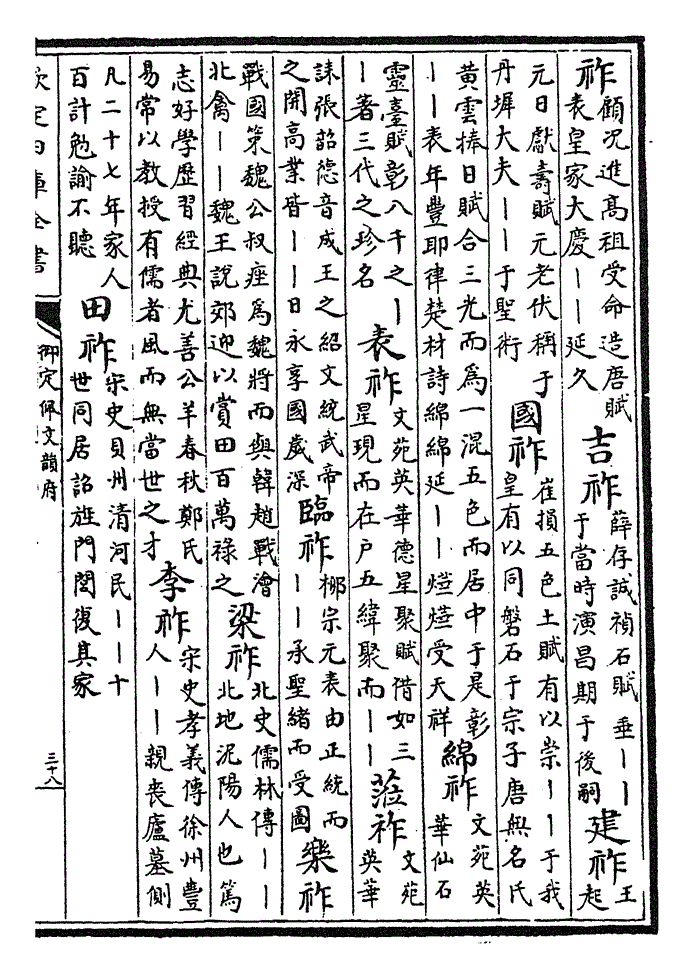 祚
顧况進高祖受命造唐賦
表皇家大慶——延久
吉祚
薛存誠禎石賦垂——
于當時演昌期于後嗣
建祚
王
起
元日獻壽賦元老伏稱于
丹墀大夫——于聖術
國祚
崔損五色土賦有以崇——于我
皇有以同磐石于宗子唐無名氏
黄雲捧日賦合三光而爲一混五色而居中于是彰
——表年豐耶律楚材詩綿綿延——熤熤受天祥
綿祚
文苑英
華仙石
靈臺賦彰八千之—
—著三代之珍名
表祚
文苑英華德星聚賦借如三
星現而在户五緯聚而——
蒞祚
文苑
英華
誄張韶德音成王之紹文統武帝
之開高業皆——日永享國歲深
臨祚
栁宗元表由正統而
——承聖緒而受圖
樂祚
戰國策魏公叔痤爲魏將而與韓趙戰澮
北禽——魏王說郊迎以賞田百萬祿之
梁祚
北史儒林傳——
北地泥陽人也篤
志好學歷習經典尤善公羊春秋鄭氏
易常以教授有儒者風而無當世之才
李祚
宋史孝義傳徐州豐
人——親喪廬墓側
凡二十七年家人
百計勉諭不聽
田祚
宋史貝州清河民——十
世同居詔旌門閭復其家
欽定四庫全書
御定佩文韻府
三十八